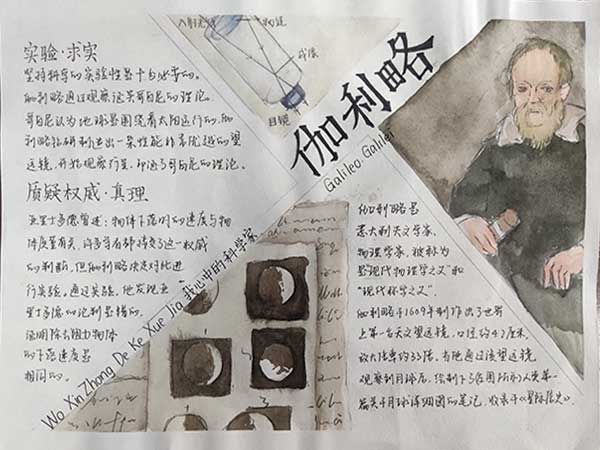 实验·求实
坚持科学的实验性是十分必要的。
伽利略通过观察证实哥白尼的理论。
哥白尼认为地球是围绕着太阳运行的,伽
利略钻研制造出一条性能非常优越的望
远镜,开始观察行星,印证了哥白尼的理论。
质疑权威·真理
亚里士多德曾述:物体下落时的速度与物
体质量有关,许多学者都接受了这一权威
的判断,但伽利略决定对此进
行实验。通过实验,他发现亚
里士多德的论判是错的,
证明除去阻力物体
的下落速度是
相同的。
入射光线
物镜
成像
目镜
伽利略
Galileo·Galilei
Wo Xin Zhong De Ke Xue Jia 我心中的科学家
伽利略是
意大利天文学家、
物理学家,被称为
是“现代物理学之父”和
“现代科学之父”。
伽利略于1609年制作出了世界
上第一台天文望远镜,口径约4.2厘米,
放大倍率约33倍。当他通过望远镜
观察到月球后,绘制了5张图所的人类第一
篇关于月球详细图的笔记,收录于《星际信史》。